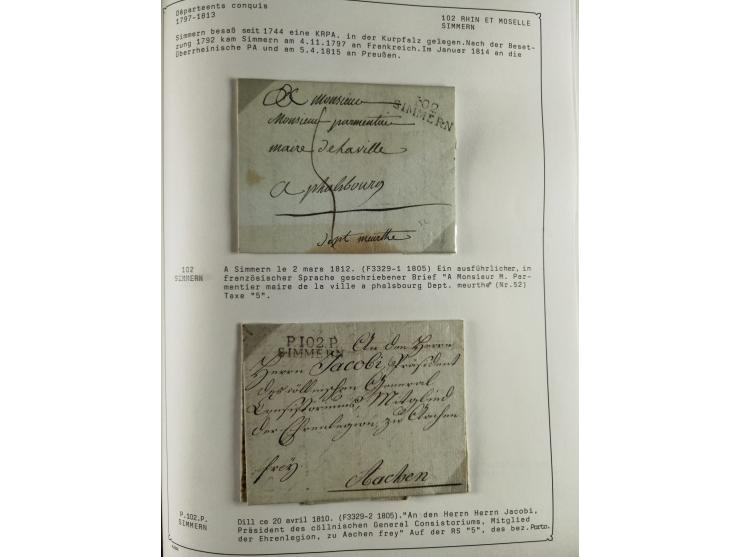 Départeents conquis
1797-1813
102 RHIN ET MOSELLE
SIMMERN
Simmern besaß seit 1744 eine KRPA. in der Kurpfalz gelegen.Nach der Beset-
zung 1792 kam Simmern am 4.11.1797 an Frankreich.Im Januar 1814 an die
Überrheinische PA und am 5.4.1815 an Preußen.
a Monsieur
102
SIMMERN
Monsieur parmentier
maire de la ville
a phalsbourg
5
dept meurthe
102
SIMMERN
A Simmern le 2 mars 1812. (F3329-1 1805) Ein ausführlicher, in
französischer Sprache geschriebener Brief "A Monsieur M. Par-
mentier maire de la ville a phalsbourg Dept. meurthe" (Nr.52)
Taxe "5".
P.102.P.
SIMMERN
An den Herrn
Herrn Jacobi, Präsident
des cöllnischen General
Consistoriums, Mitglied
der Ehrenlegion, zu Aachen
frey.
Aachen
P.102.P.
SIMMERN
Dill ce 20 avril 1810. (F3329-2 1805)."An den Herrn Herrn Jacobi,
Präsident des cöllnischen General Consistoriums, Mitglied
der Ehrenlegion, zu Aachen frey" Auf der RS "5", des bez.Porto.